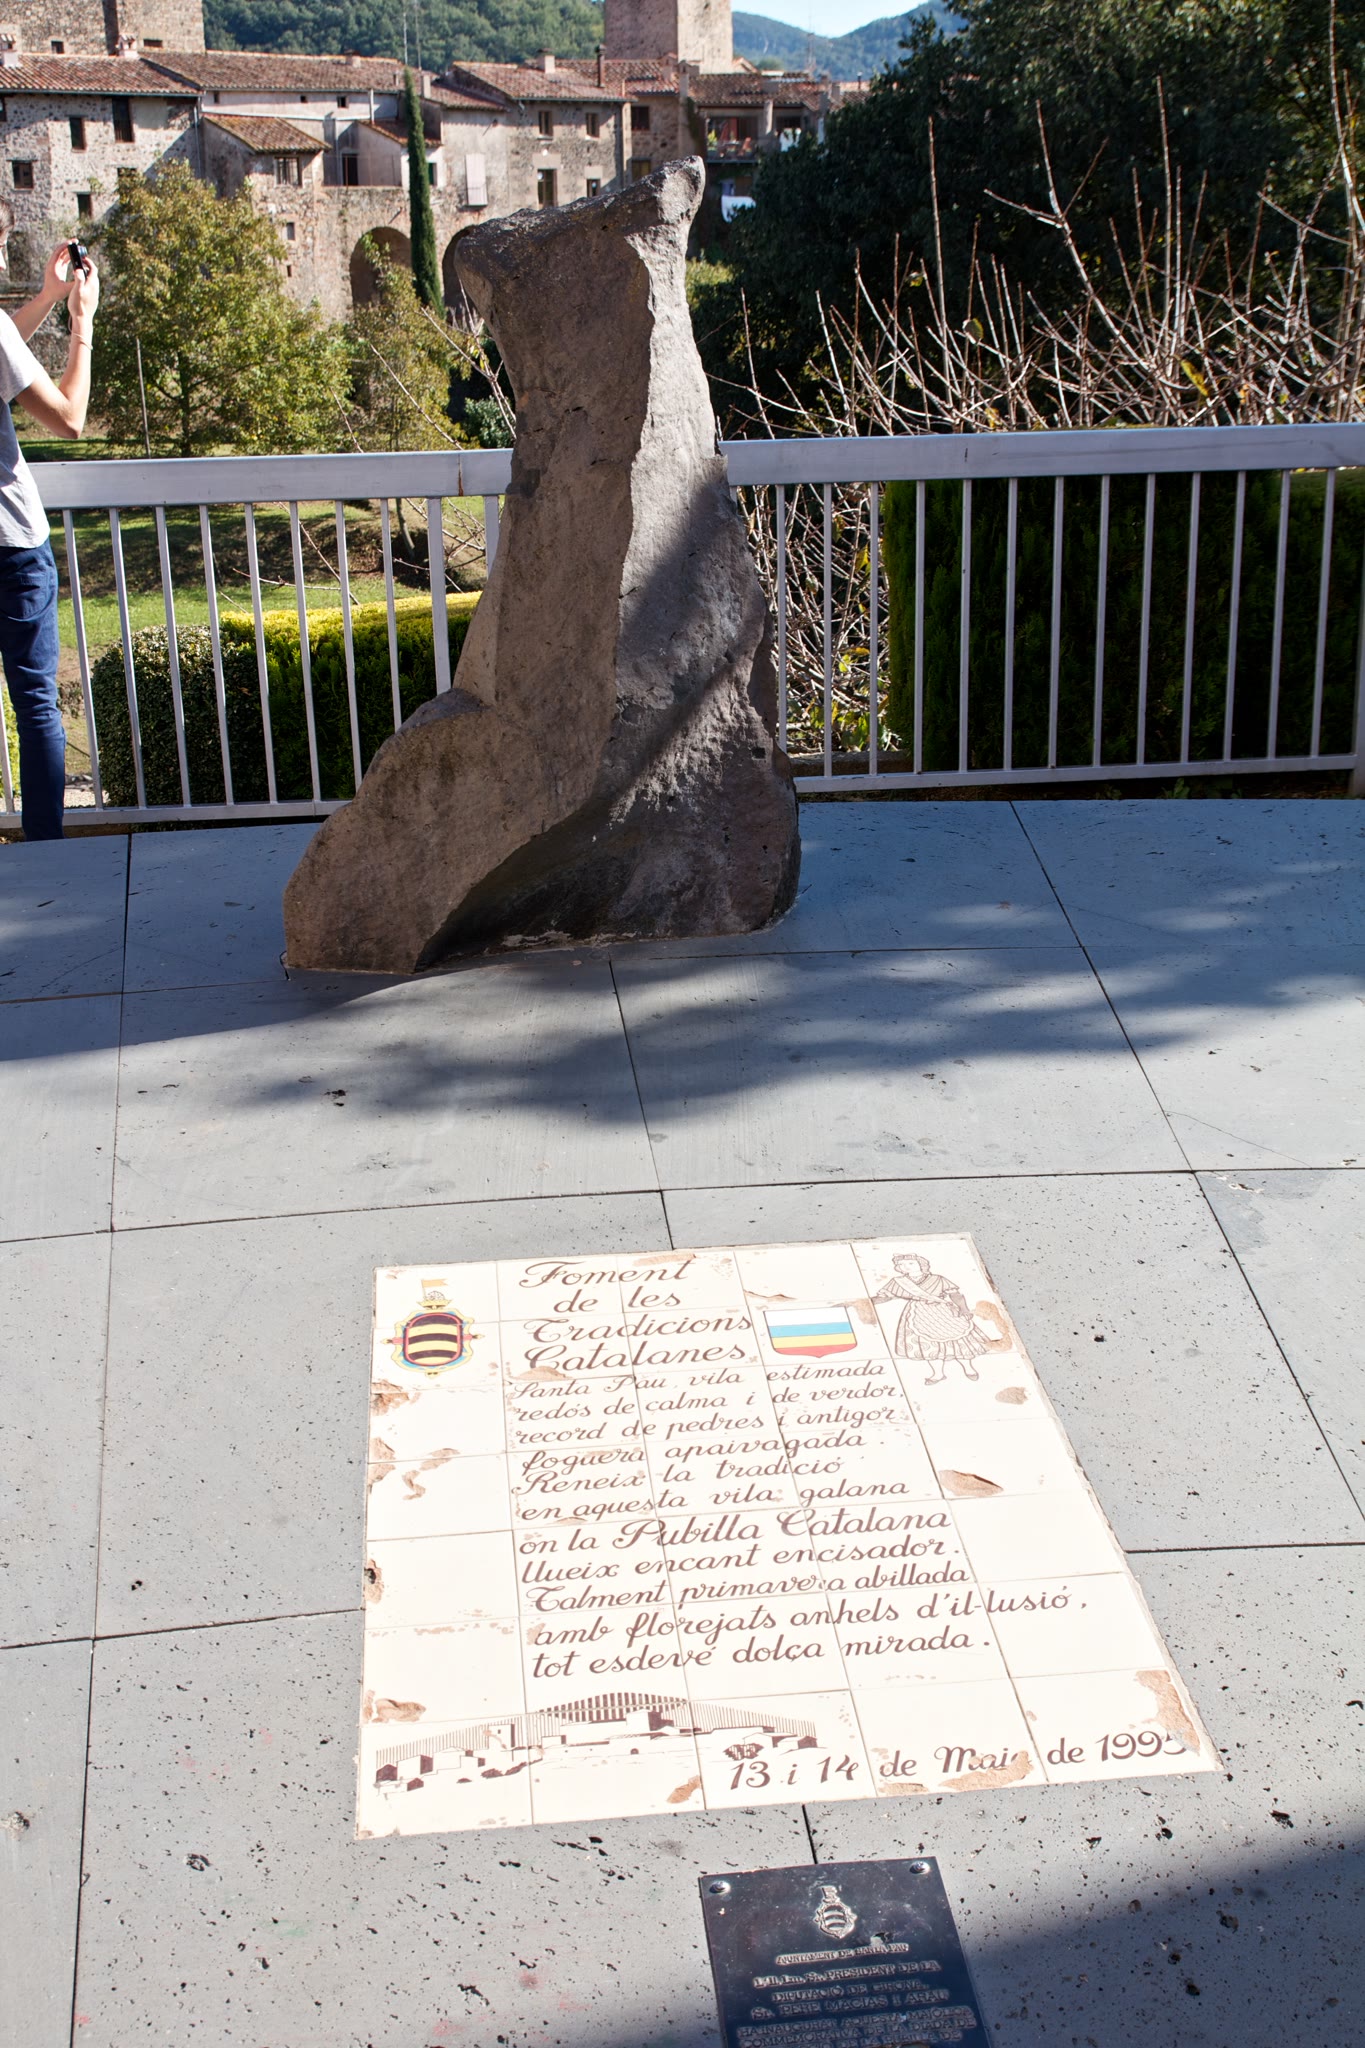 Foment
de les
Tradicions
Catalanes
Santa Pau, vila estimada
redós de calma i de verdor,
record de pedres i antigor
foguera apaivagada.
Reneix la tradició
en aquesta vila galana
on la Pubilla Catalana
llueix encant encisador.
Talment primavera abillada
amb florejats anhels d'il·lusió,
tot esdevé dolça mirada.
13 i 14 de Maig de 1995
AJUNTAMENT DE SANTA PAU
L'IL·LM. SR. PRESIDENT DE LA
DIPUTACIÓ DE GIRONA
SR. PERE MACIAS I ARAU
HA INAUGURAT AQUESTA
COMMEMORATIVA DE